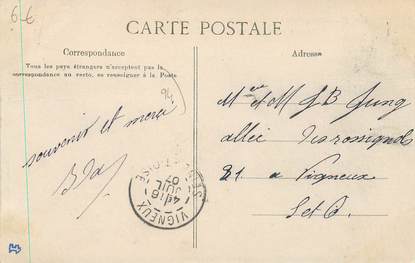 6€
CARTE POSTALE
Correspondance
Tous les pays étrangers n'acceptent pas la
correspondance au recto, se renseigner à la Poste
Adresse
souvenir et merci
Mme et M J B Jung
allée des rossignols
81 a Vigneux
S et O.
VIGNEUX
SEINE-ET-OISE
4 16
JUIL
07